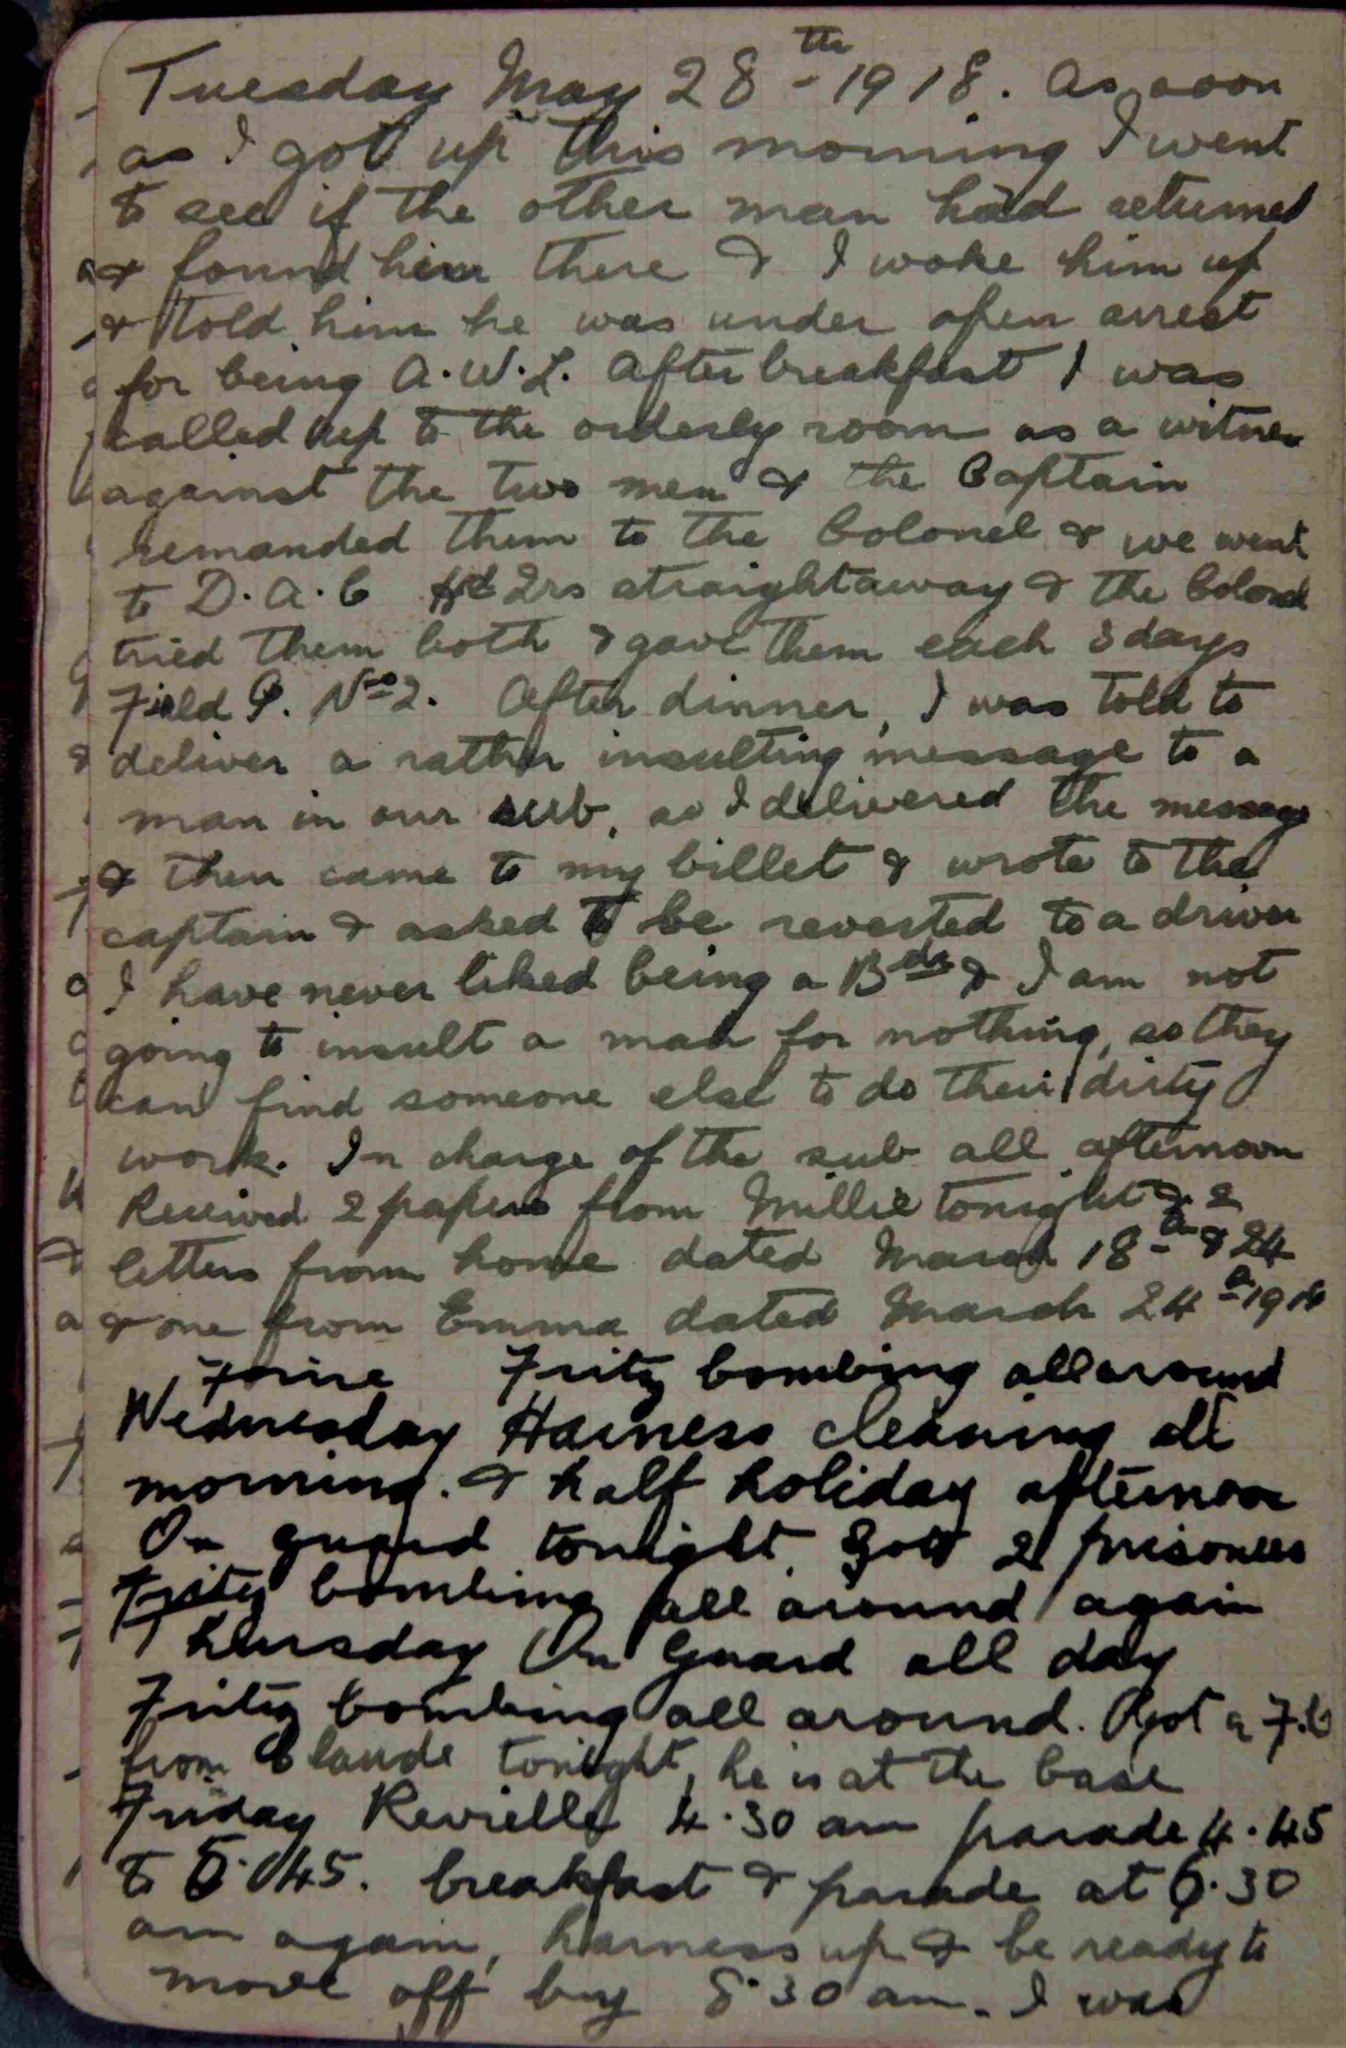 Tuesday May 28th 1918. As soon
as I got up this morning I went
to see if the other man had returned
& found him there & I woke him up
& told him he was under open arrest
for being A.W.L. After breakfast I was
called up to the orderly room as a witness
against the two men & the Captain
remanded them to the Colonel & we went
to D.A.C Hd Qrs straightaway & the Colonel
tried them both & gave them each 3 days
Field P. No 2. After dinner, I was told to
deliver a rather insulting message to a
man in our sub, so I delivered the message
& then came to my billet & wrote to the
captain & asked to be reverted to a driver
I have never liked being a Bdr & I am not
going to insult a man for nothing, so they
can find someone else to do their dirty
work. In charge of the sub all afternoon
Received 2 papers from Millie tonight & 2
letters from home dated March 18th & 24
& one from Emma dated March 24th 1918
Fritz bombing all around
Wednesday Harness cleaning all
morning. & half holiday afternoon
On guard tonight. Got 2 prisoners
Fritz bombing all around again
Thursday On Guard all day
Fritz bombing all around. Got a F.C
from Claude tonight, he is at the base
Friday Revielle 4.30 am parade 4.45
to 5.45. breakfast & parade at 6.30
am again, harness up & be ready to
move off buy 8.30 am. I was